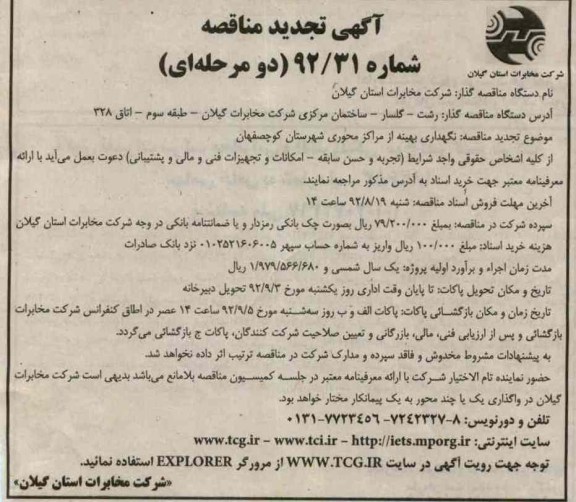 آگهی تجدید مناقصه
شماره ۹۲/۳۱ (دو مرحله‌ای)
شرکت مخابرات استان گیلان
نام دستگاه مناقصه گذار: شرکت مخابرات استان گیلان
آدرس دستگاه مناقصه گذار: رشت – گلسار – ساختمان مرکزی شرکت مخابرات گیلان – طبقه سوم – اتاق ۳۲۸
موضوع تجدید مناقصه: نگهداری بهینه از مراکز محوری شهرستان کوچصفهان
از کلیه اشخاص حقوقی واجد شرایط (تجربه و حسن سابقه – امکانات و تجهیزات فنی و مالی و پشتیبانی) دعوت بعمل می‌آید با ارائه
معرفینامه معتبر جهت خرید اسناد به آدرس مذکور مراجعه نمایند.
آخرین مهلت فروش اسناد مناقصه: شنبه ۹۲/۸/۱۹ ساعت ۱۴
سپرده شرکت در مناقصه: بمبلغ ۷۹/۲۰۰/۰۰۰ ریال بصورت چک بانکی رمزدار و یا ضمانتنامه بانکی در وجه شرکت مخابرات استان گیلان
هزینه خرید اسناد: مبلغ ۱۰۰/۰۰۰ ریال واریز به شماره حساب سپهر ۰۱۰۲۵۲۱۶۰۶۰۰۵ نزد بانک صادرات
مدت زمان اجراء و برآورد اولیه پروژه: یک سال شمسی و ۱/۹۷۹/۵۶۶/۶۸۰ ریال
تاریخ و مکان تحویل پاکات: تا پایان وقت اداری روز یکشنبه مورخ ۹۲/۹/۳ تحویل دبیرخانه
تاریخ زمان و مکان بازگشائی پاکات: پاکات الف و ب روز سه‌شنبه مورخ ۹۲/۹/۵ ساعت ۱۴ عصر در اطاق کنفرانس شرکت مخابرات
بازگشائی و پس از ارزیابی فنی، مالی، بازرگانی و تعیین صلاحیت شرکت کنندگان، پاکات ج بازگشائی می‌گردد.
به پیشنهادات مشروط مخدوش و فاقد سپرده و مدارک شرکت در مناقصه ترتیب اثر داده نخواهد شد.
حضور نماینده تام الاختیار شرکت با ارائه معرفینامه معتبر در جلسه کمیسیون مناقصه بلامانع می‌باشد بدیهی است شرکت مخابرات
گیلان در واگذاری یک یا چند محور به یک پیمانکار مختار خواهد بود.
تلفن و دورنویس: ۸-۷۲۴۲۳۲۷ ۷۷۲۳۴۵۶-۰۱۳۱
سایت اینترنتی: www.tcg.ir – www.tci.ir – http://iets.mporg.ir
توجه جهت رویت آگهی در سایت WWW.TCG.IR از مرورگر EXPLORER استفاده نمائید.
«شرکت مخابرات استان گیلان»